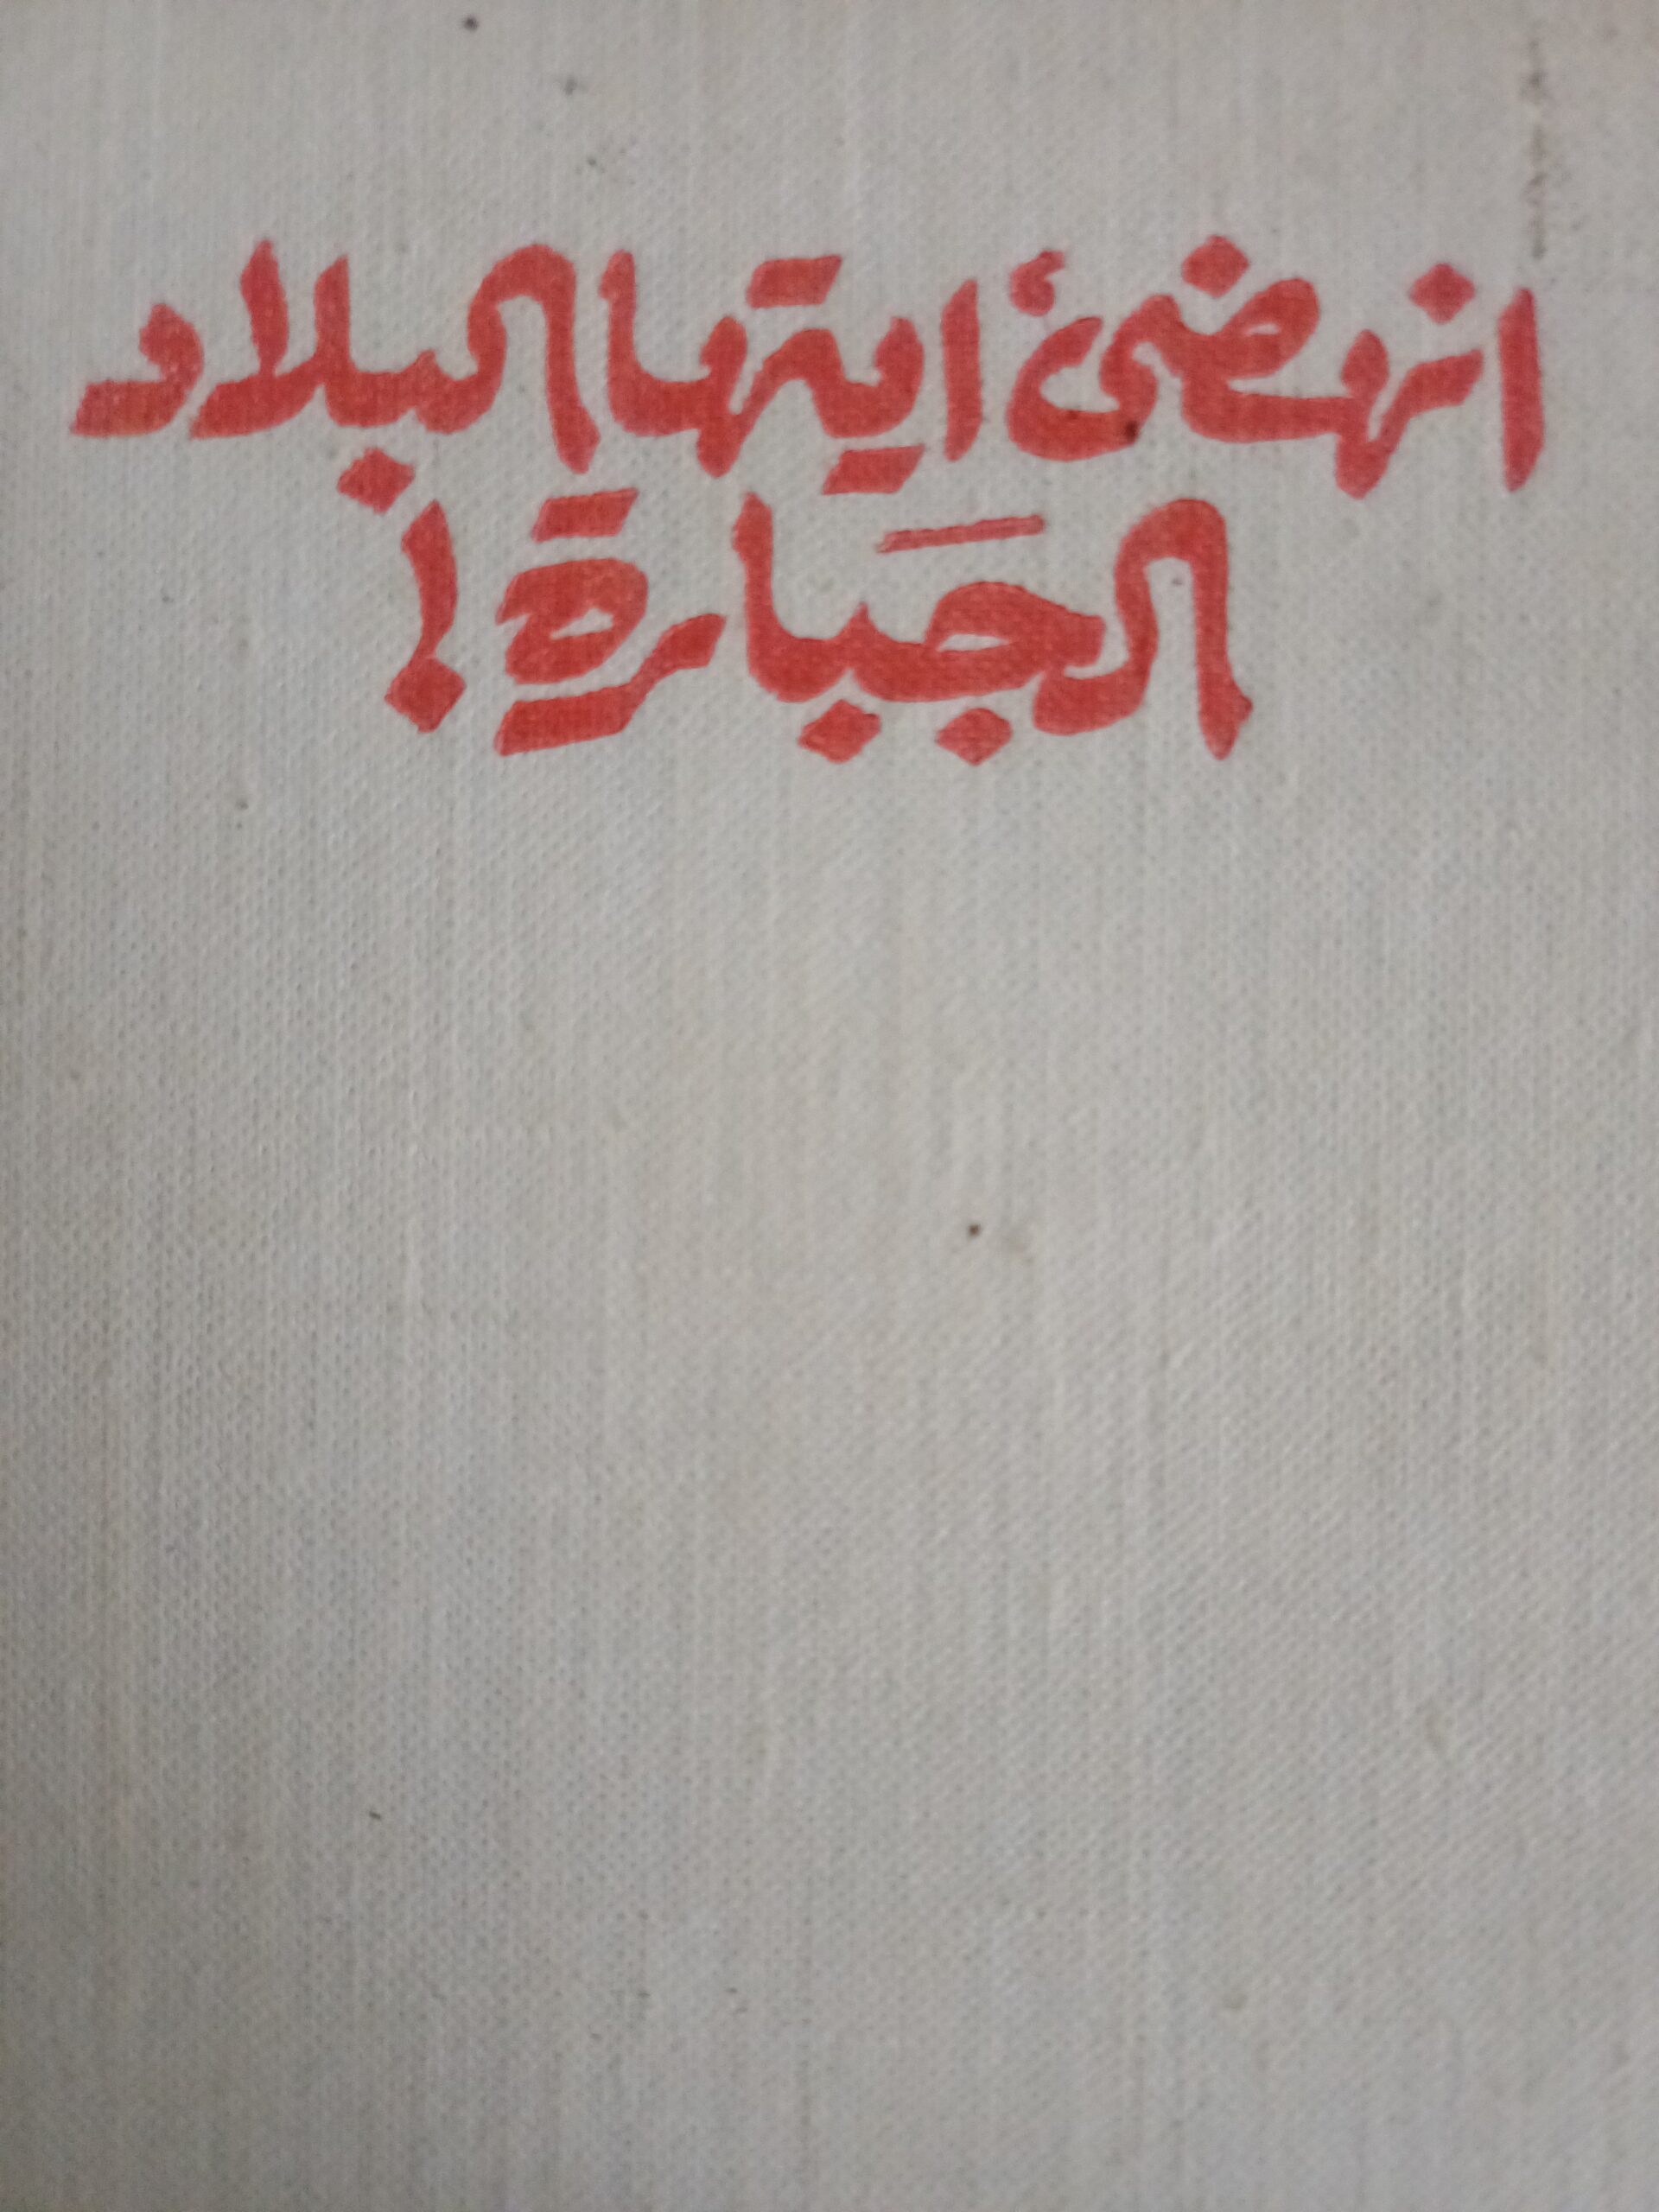 انهضي، ايتها البلاد
الجبارة!